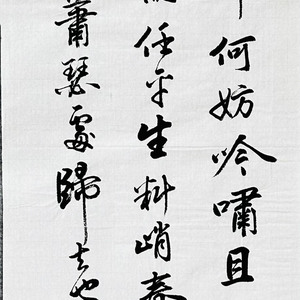 何妨吟嘯且
任平生料峭春
蕭瑟處歸去也